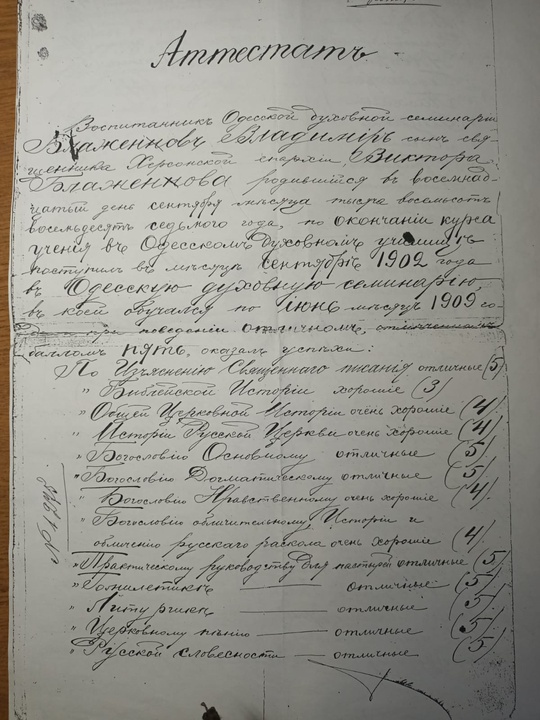 Аттестатъ
Воспитанникъ Одесской духовной семинаріи
Блаженковъ Владиміръ сынъ свя-
щенника Херсонской епархіи, Виктора
Блаженкова родившійся въ восемнад-
цатый день сентября мѣсяца тысяча восемьсотъ
восемьдесятъ седьмого года, по окончаніи курса
ученія въ Одесскомъ духовномъ училищѣ
поступилъ въ мѣсяцѣ сентябрѣ 1902 года
въ Одесскую духовную семинарію,
въ коей обучался по іюнь мѣсяцъ 1909 го-
поведеніи отличномъ,
балломъ пять, оказалъ успѣхи:
По Изъясненію Священнаго писанія отличные (5)
" Библейской Исторіи хорошіе (3)
" Общей Церковной Исторіи очень хорошіе (4)
" Исторіи Русской Церкви очень хорошіе (4)
" Богословію Основному отличные (5)
" Богословію Догматическому отличные (5)
" Богословію Нравственному очень хорошіе (4)
" Богословію обличительному, Исторіи и
обличенію русскаго раскола очень хорошіе (4)
" Практическому руководству для пастырей отличные (5)
" Гомилетикѣ — отличные (5)
" Литургикѣ — отличные (5)
" Церковному пѣнію — отличные (5)
" Русской словесности — отличные (5)